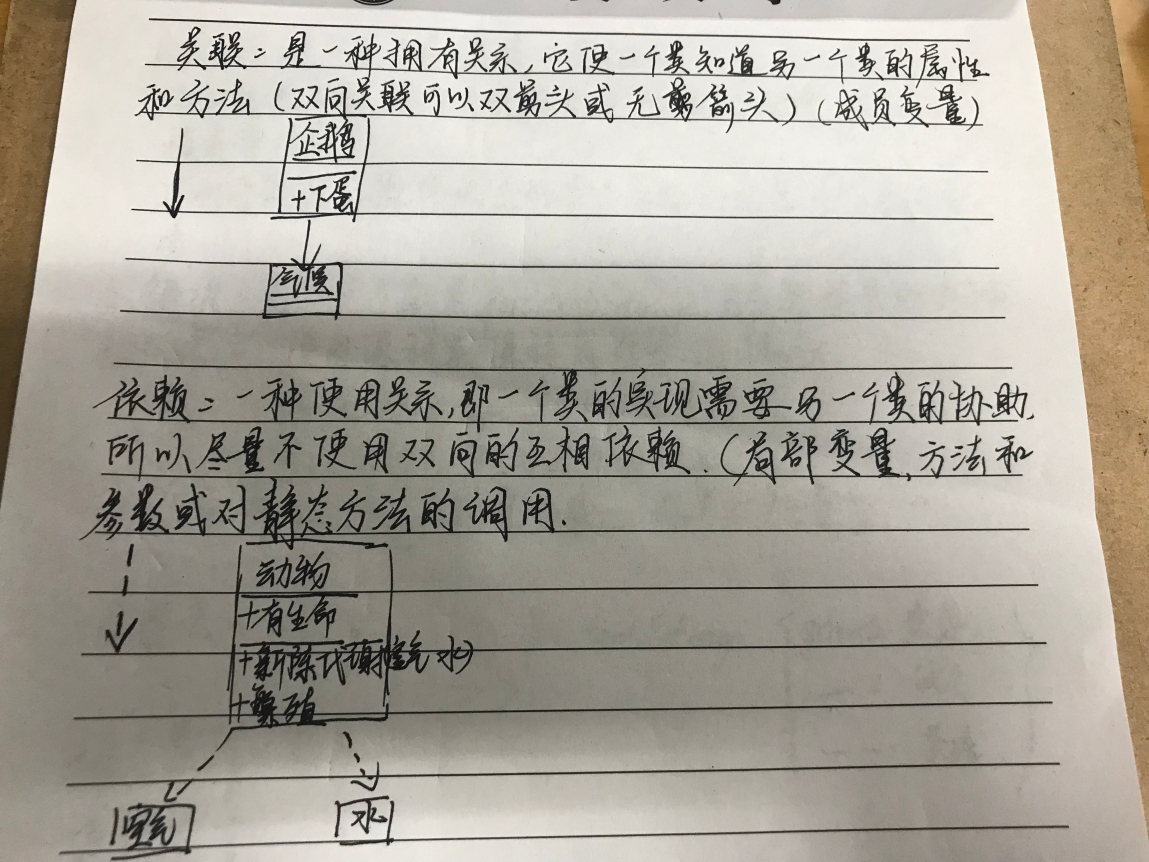 关联：是一种拥有关系，它使一个类知道另一个类的属性
和方法（双向关联可以双剪头或无箭头）（成员变量）
企鹅
+下蛋
气候
依赖：一种使用关系，即一个类的实现需要另一个类的协助，
所以尽量不使用双向的互相依赖．（局部变量，方法和
参数或对静态方法的调用．
动物
+有生命
+新陈代谢(空气 水)
+繁殖
空气
水